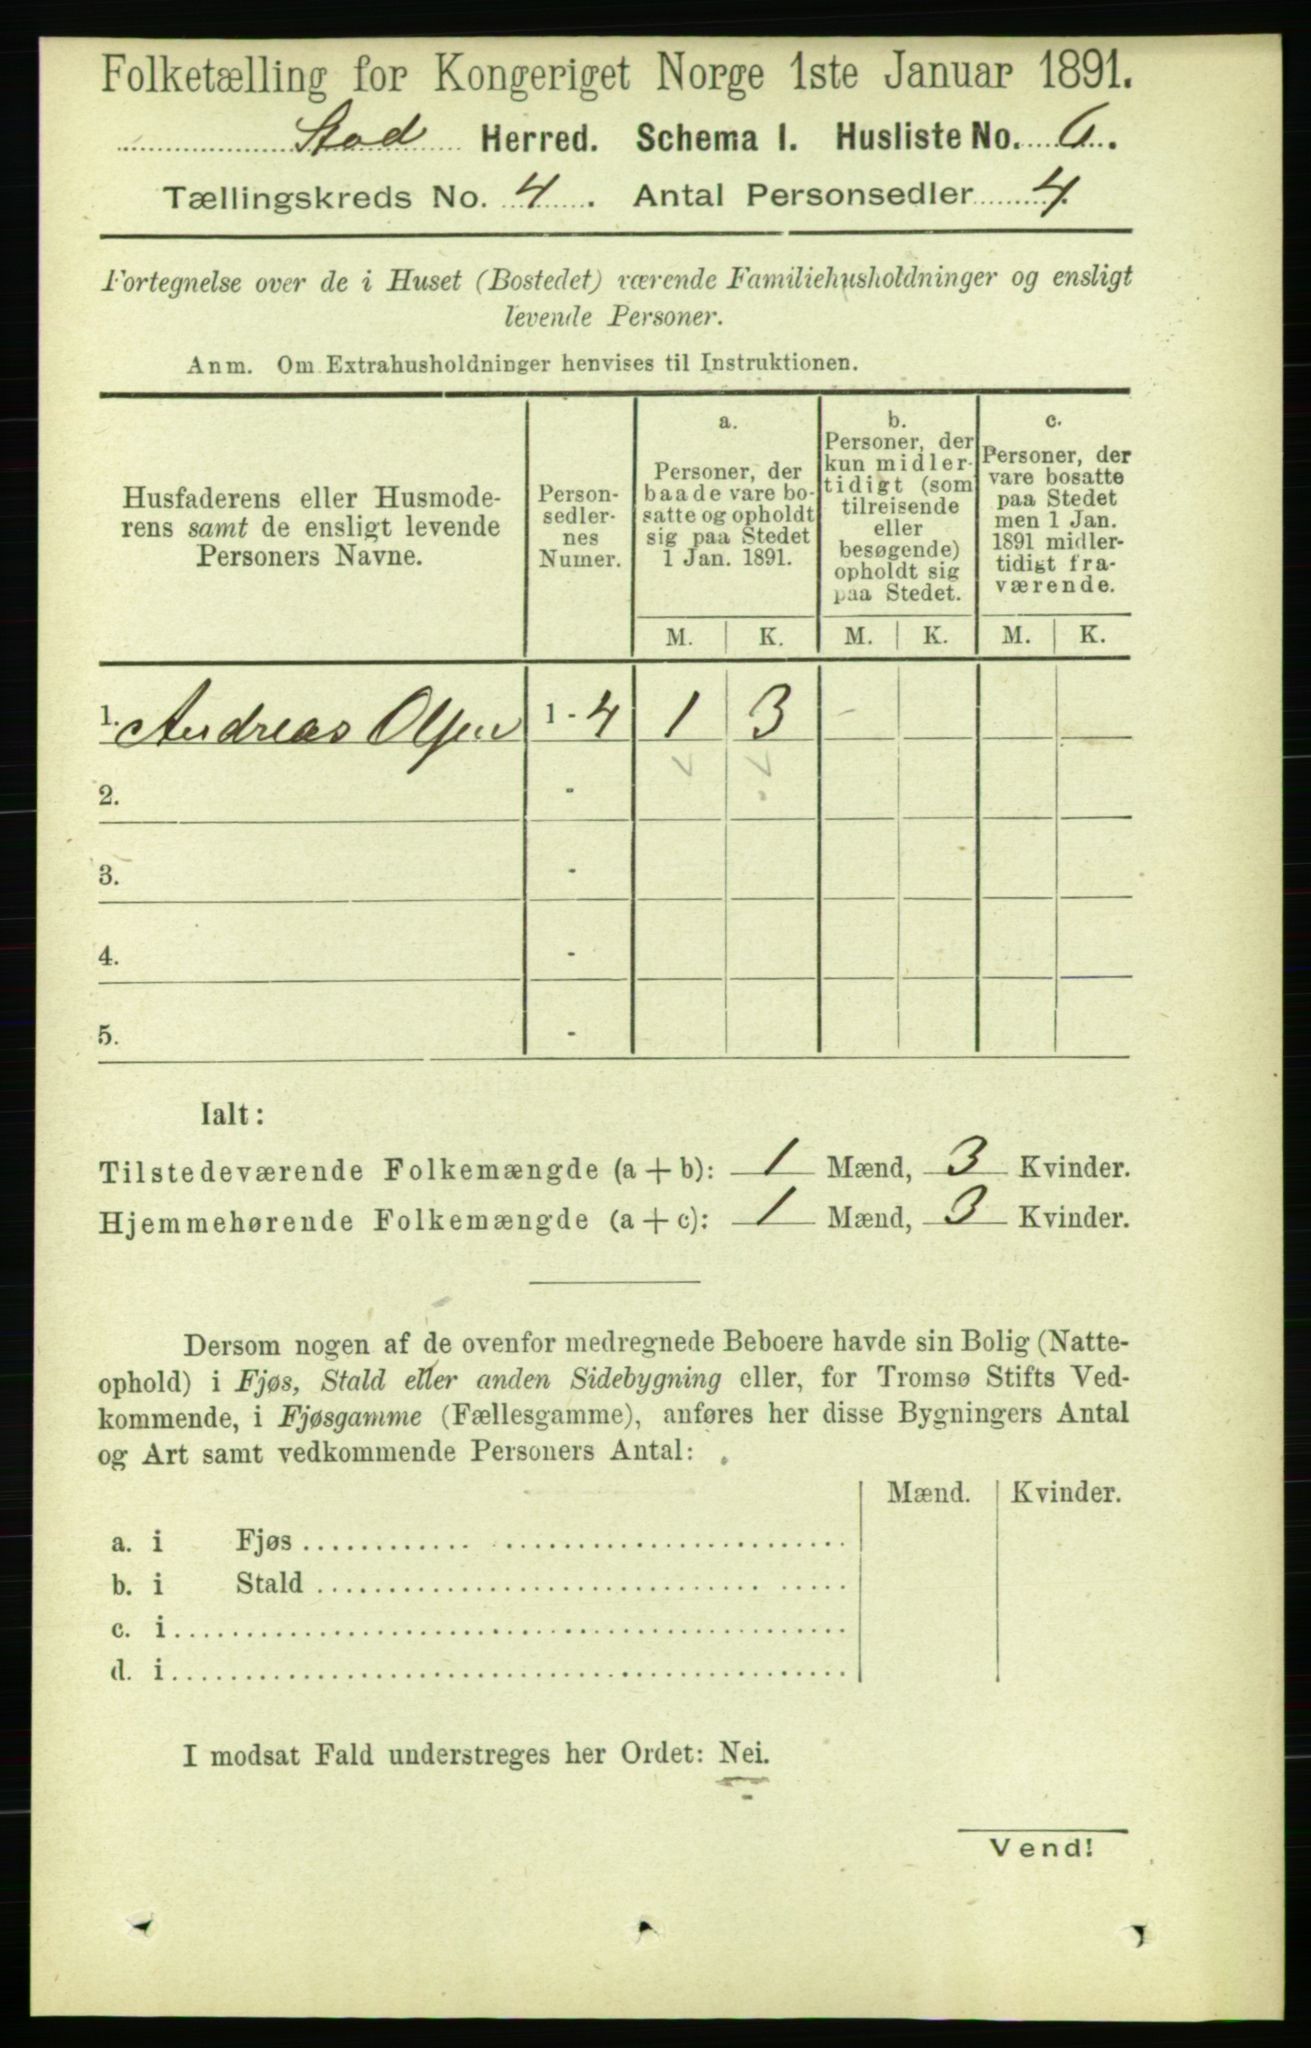 Folketælling for Kongeriget Norge 1ste Januar 1891.
Stod Herred. Schema I. Husliste No. 6.
Tællingskreds No. 4. Antal Personsedler 4.
Fortegnelse over de i Huset (Bostedet) værende Familiehusholdninger og ensligt
levende Personer.
Anm. Om Extrahusholdninger henvises til Instruktionen.
Husfaderens eller Husmode-
rens samt de ensligt levende
Personers Navne.
Person-
sedler-
nes
Numer.
a.
Personer, der
baade vare bo-
satte og opholdt
sig paa Stedet
1 Jan. 1891.
b.
Personer, der
kun midler-
tidigt (som
tilreisende
eller
besøgende)
opholdt sig
paa Stedet.
c.
Personer, der
vare bosatte
paa Stedet
men 1 Jan.
1891 midler-
tidigt fra-
værende.
M. K. M. K. M. K.
1. Andreas Olsen 1 - 4 1 3 -
2. -
3. -
4. -
5. -
Ialt:
Tilstedeværende Folkemængde (a + b): 1 Mænd, 3 Kvinder.
Hjemmehørende Folkemængde (a + c): 1 Mænd, 3 Kvinder.
Dersom nogen af de ovenfor medregnede Beboere havde sin Bolig (Natte-
ophold) i Fjøs, Stald eller anden Sidebygning eller, for Tromsø Stifts Ved-
kommende, i Fjøsgamme (Fællesgamme), anføres her disse Bygningers Antal
og Art samt vedkommende Personers Antal:
Mænd. Kvinder.
a. i Fjøs
b. i Stald
c. i
d. i
I modsat Fald understreges her Ordet: Nei.
Vend!